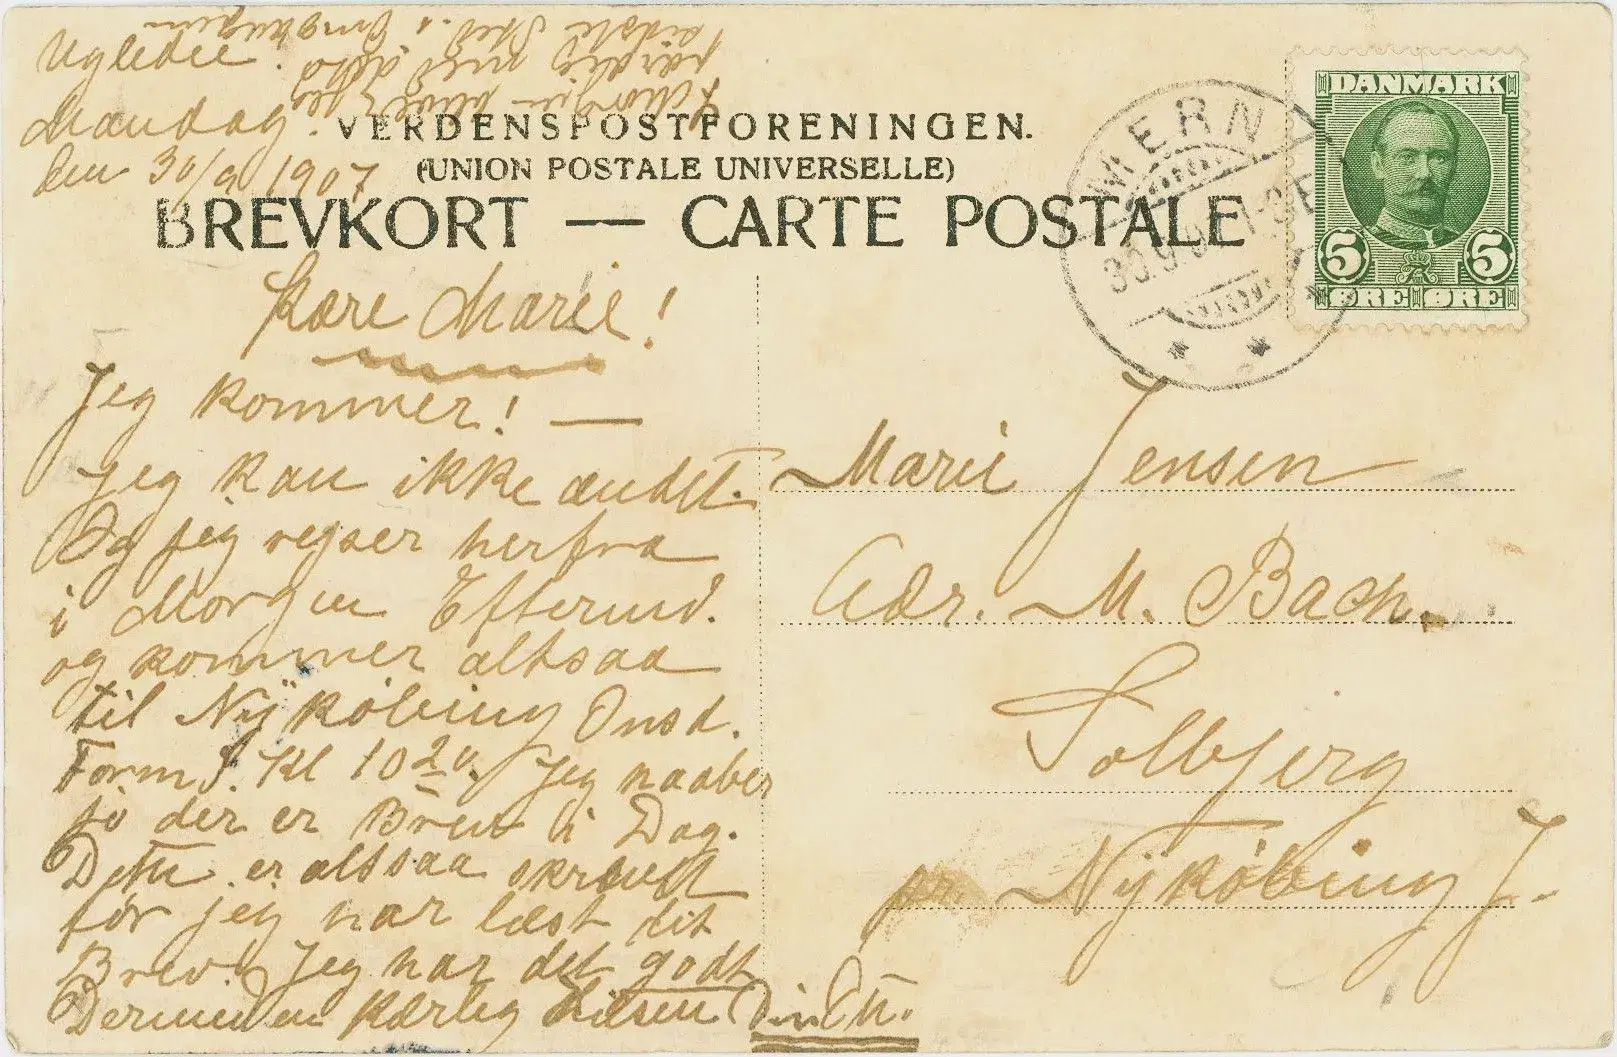 Ugledie.
Mandag.
den 30/9 1907
I Morgen bliver jeg
færdig med dette
sidste Sted.
VERDENSPOSTFORENINGEN.
(UNION POSTALE UNIVERSELLE)
BREVKORT — CARTE POSTALE
MERN
30.9.0 1-3E
DANMARK
5 5
ØRE ØRE
Kære Marie!
Jeg kommer! —
Jeg kan ikke andet.
Og jeg rejser herfra
i Morgen Eftermd.
og kommer altsaa
til Nÿkøbing Onsd.
Form. Kl 10 20. Jeg haaber
jo der er Brev i Dag.
Dette er altsaa skrevet
før jeg har læst dit
Brev. Jeg har det godt
Dermed en kærlig Hilsen Din
Marie Jensen
Adr. M. Bach.
Solbjerg
pr. Nÿkøbing J.